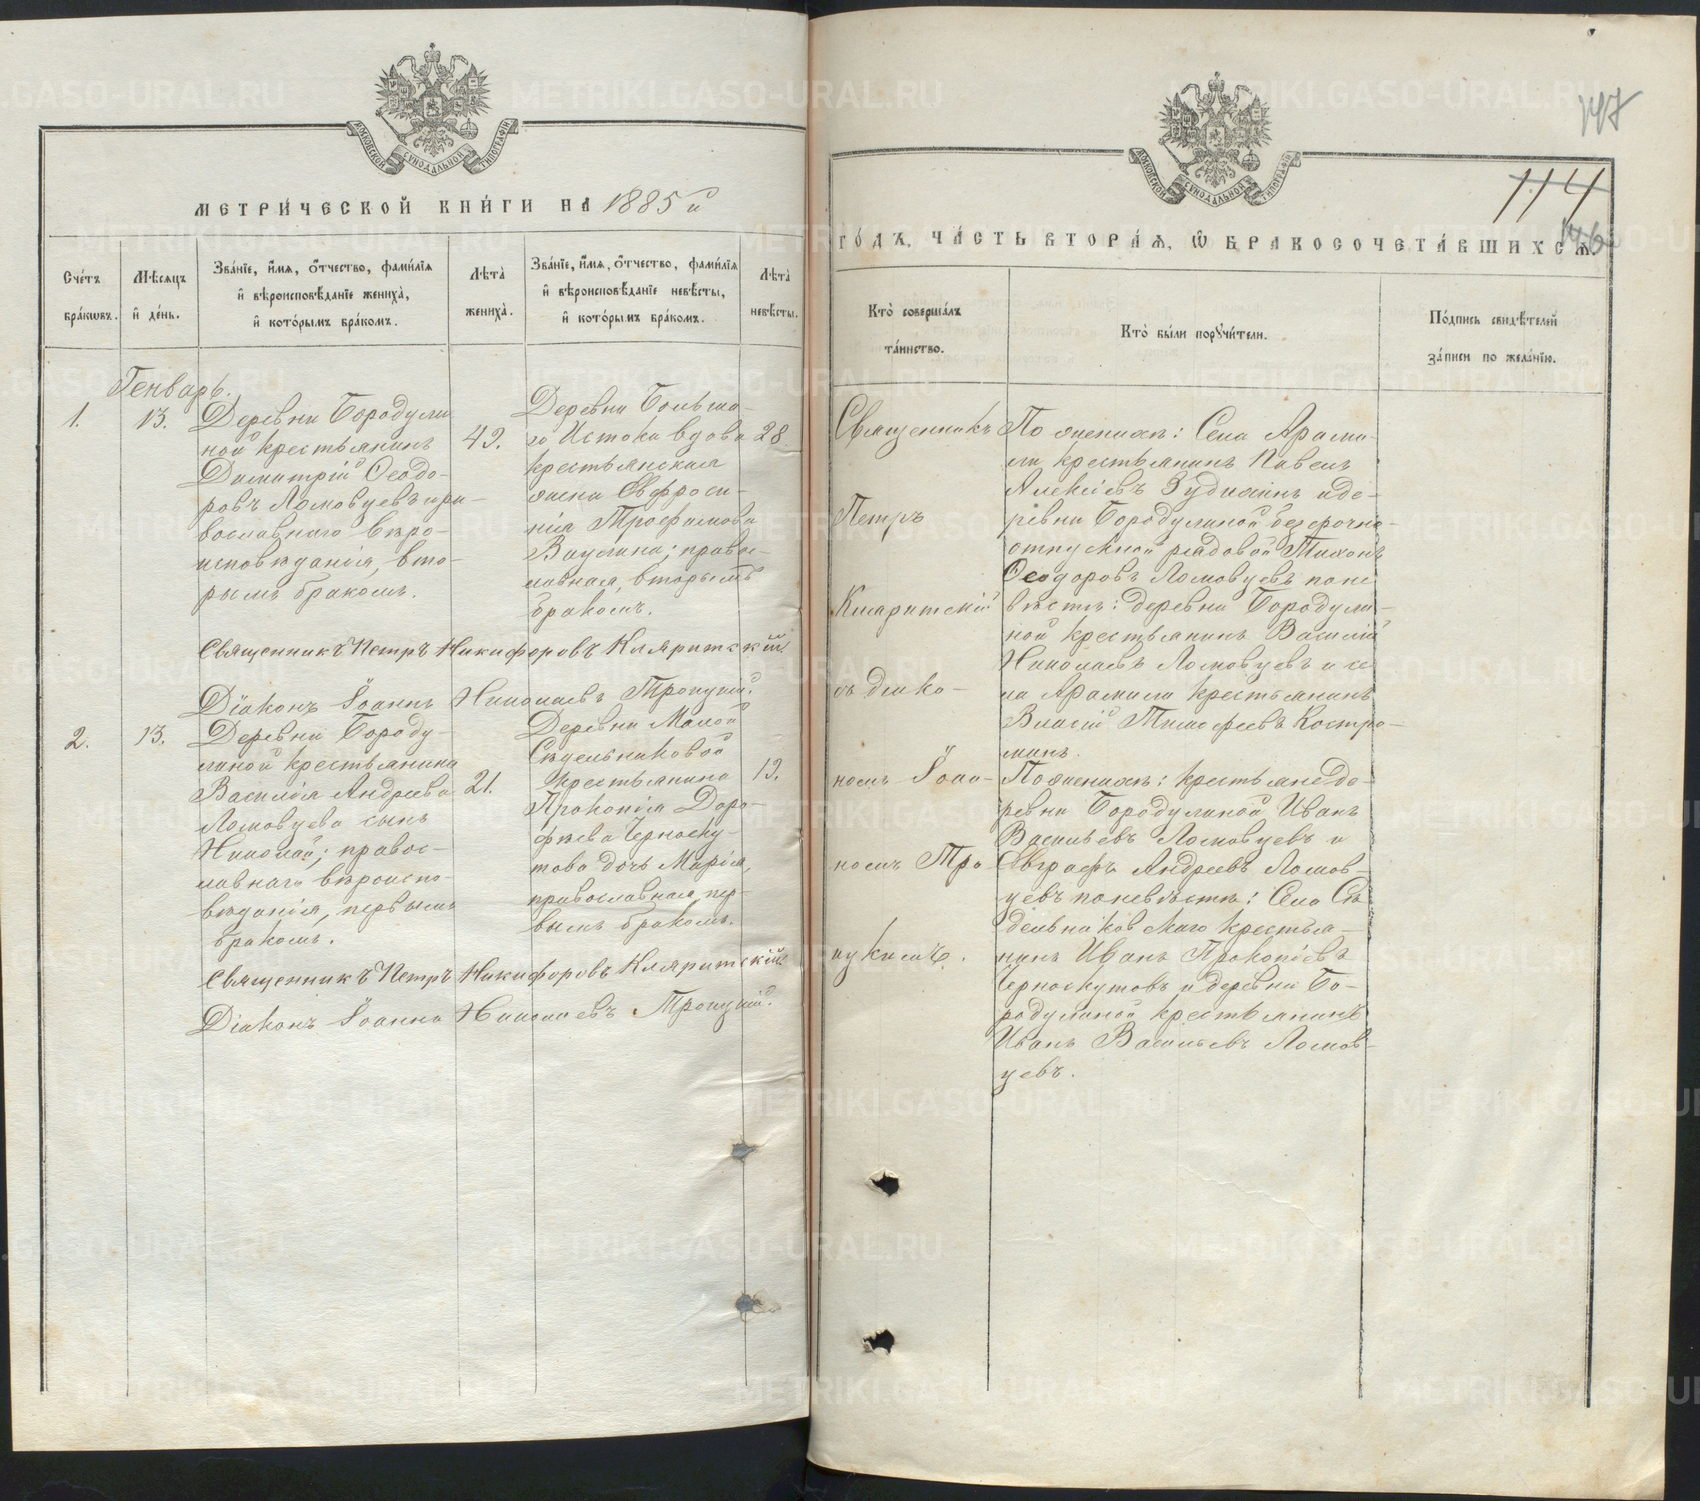 МЕТРИ́ЧЕСКОЙ КНИ́ГИ НА 1885 й
Сче́тъ бра́кѡвъ.
Мѣ́сяцъ и́ де́нь.
Зва́нїе, и́мѧ, ѻ҆́тчество, фами́лїѧ и҆ вѣроисповѣ́данїе жениха̀, и҆ кото́рымъ бра́комъ.
Лѣта̀ жениха̀.
Зва́нїе, и́мѧ, ѻ҆́тчество, фами́лїѧ и҆ вѣроисповѣ́данїе невѣ́сты, и҆ кото́рымъ бра́комъ.
Лѣта̀ невѣ́сты.
Генварь.
1.
13.
Деревни Бородули
ной крестьянинъ
Димитрій Ѳеодо-
ровъ Ломовцевъ пра-
вославнаго вѣро-
исповѣданія, вто-
рымъ бракомъ.
49.
Деревни Больша-
го Истока вдова
крестьянская
жена Евфроси-
нія Трофимова
Ваулина; правос-
лавная, вторымъ
бракомъ.
28.
Священникъ Петръ Никифоровъ Кляритскій
Діаконъ Іоаннъ Николаевъ Троицкій.
2.
13.
Деревни Бороду-
линой крестьянина
Василія Андреева
Ломовцева сынъ
Николай; правос-
лавнаго вѣроиспо-
вѣданія, первымъ
бракомъ.
21.
Деревни Малой
Сѣдельниковой
крестьянина
Прокопія Доро-
фѣева Черноску-
това дочь Марія,
православная, пер-
вымъ бракомъ.
19.
Священникъ Петръ Никифоровъ Кляритскій
Діаконъ Іоаннъ Николаевъ Троицкій.
147
114
146
ГО́ДЪ, ЧА́СТЬ ВТОРА́Ѧ, Ѡ҆ БРАКОСОЧЕТА́ВШИХСѦ.
Кто̀ соверша́лъ та́инство.
Кто̀ бы́ли порꙋчи́тели.
По́дпись свидѣ́телей за́писи по жела́нїю.
Священникъ
Петръ
Кляритскій
съ діако-
номъ Іоан-
номъ Тро-
ицкимъ.
По женихѣ: Села Арами-
ли крестьянинъ Павелъ
Алексѣевъ Зудихинъ и де-
ревни Бородулиной безсрочно-
отпускной рядовой Тихонъ
Ѳеодоровъ Ломовцевъ по не
вѣстѣ: деревни Бородули-
ной крестьянинъ Василій
Николаевъ Ломовцевъ и се
ла Арамили крестьянинъ
Власій Тимофеевъ Костро-
минъ.
По женихѣ: крестьяне де-
ревни Бородулиной Иванъ
Васильевъ Ломовцевъ и
Евграфъ Андреевъ Ломов-
цевъ по невѣстѣ: Села Сѣ
дельниковскаго крестья-
нинъ Иванъ Прокопіевъ
Черноскутовъ и деревни Бо-
родулиной крестьянинъ
Иванъ Васильевъ Ломов-
цевъ.
METRIKI.GASO-URAL.RU